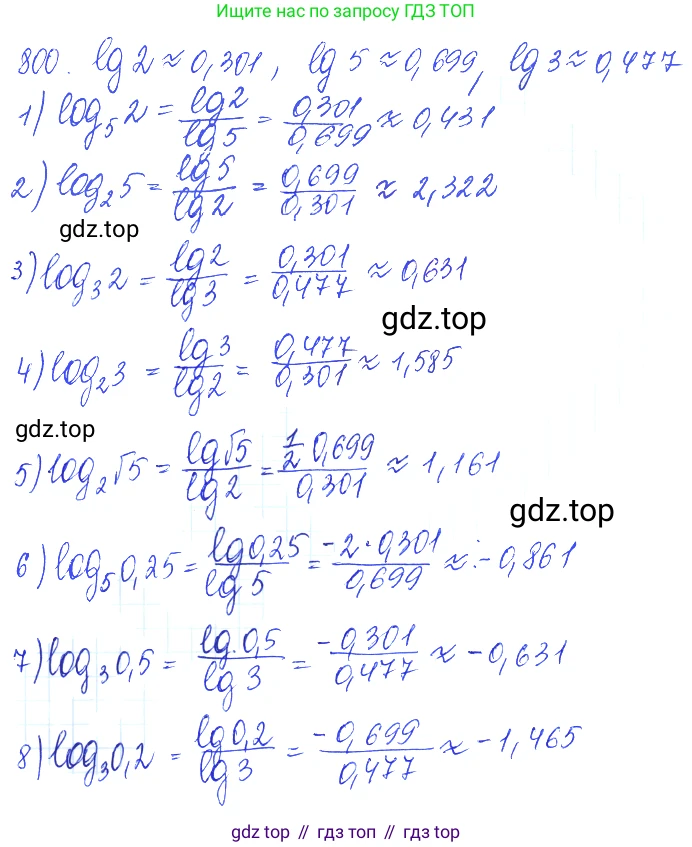 Ищите нас по запросу ГДЗ ТОП
800. lg 2 ≈ 0,301, lg 5 ≈ 0,699, lg 3 ≈ 0,477
1) log₅2 = lg2/lg5 = 0,301/0,699 ≈ 0,431
2) log₂5 = lg5/lg2 = 0,699/0,301 ≈ 2,322
gdz.top
3) log₃2 = lg2/lg3 = 0,301/0,477 ≈ 0,631
gdz.top
4) log₂3 = lg3/lg2 = 0,477/0,301 ≈ 1,585
gdz.top
5) log₂√5 = lg√5/lg2 = 1/2 0,699/0,301 ≈ 1,161
gdz.top
6) log₅0,25 = lg0,25/lg5 = -2·0,301/0,699 ≈ -0,861
7) log₃0,5 = lg0,5/lg3 = -0,301/0,477 ≈ -0,631
8) log₃0,2 = lg0,2/lg3 = -0,699/0,477 ≈ -1,465
gdz top // гдз топ // gdz.top